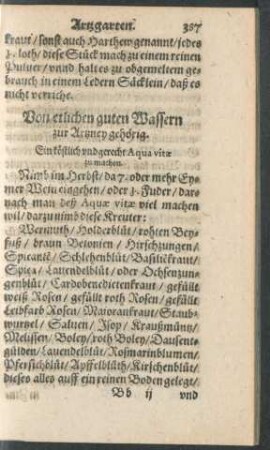 Artzgarten. 387
kraut / sonst auch Harthew genannt / jedes
3. loth / diese Stück mach zu einem reinen
Pulver / vnnd halt es zu obgemeltem ge-
brauch in einem Ledern Säcklein / daß es
nicht verrieche.
Von etlichen guten Wassern
zur Artzney gehörig.
Ein köstlich vnd gerecht Aqua vitæ
zu machen.
Nimb im Herbst / da 7. oder mehr Ey-
mer Wein eingehen / oder 3. Fuder / dar-
nach man deß Aquæ vitæ viel machen
wil / darzu nimb diese Kreuter:
Wermuth / Holderblüt / rohten Bey-
fuß / braun Betonien / Hirschzungen /
Spicanté / Schlehenblüt / Basilickraut /
Spica / Lauendelblüt / oder Ochsenzun-
genblüt / Cardobenedictenkraut / gefült
weiß Rosen / gefült roth Rosen / gefült
Leibfarb Rosen / Maiorankraut / Staub-
wurtzel / Saluen / Isop / Kraußmüntz /
Melissen / Boley / roth Boley / Dausent-
gülden / Lauendelblüt / Roßmarinblumen /
Pfersichblüt / Apffelblüth / Kirschenblüt /
dieses alles auff ein reinen Boden gelegt /
Bb ij vnd